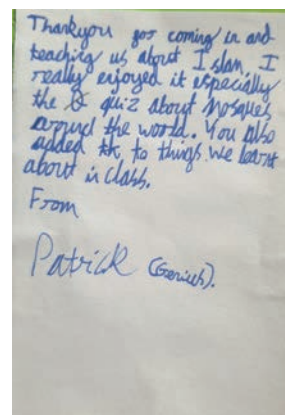 Thankyou for coming in and
teaching us about Islam I
really enjoyed it especially
the quiz about Mosques
around the world. You also
added to things we learnt
about in class.
From
Patrick